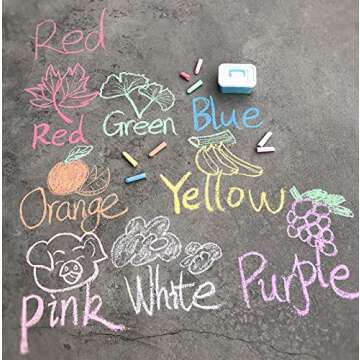 Red
Red Green Blue
Orange Yellow
Pink White Purple